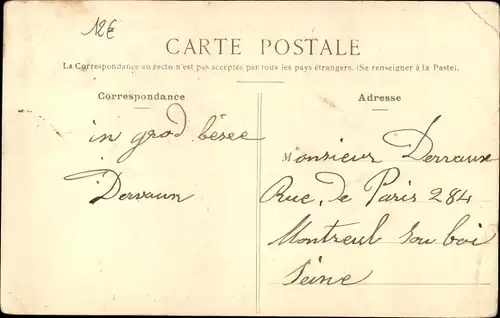 12€
CARTE POSTALE
La Correspondance au recto n'est pas acceptée par tous les pays étrangers. (Se renseigner à la Poste).
Correspondance
Adresse
in grod bésee
Dervaux
Monsieur Derraux
Rue, de Paris 284
Montreul sou boi
Seine